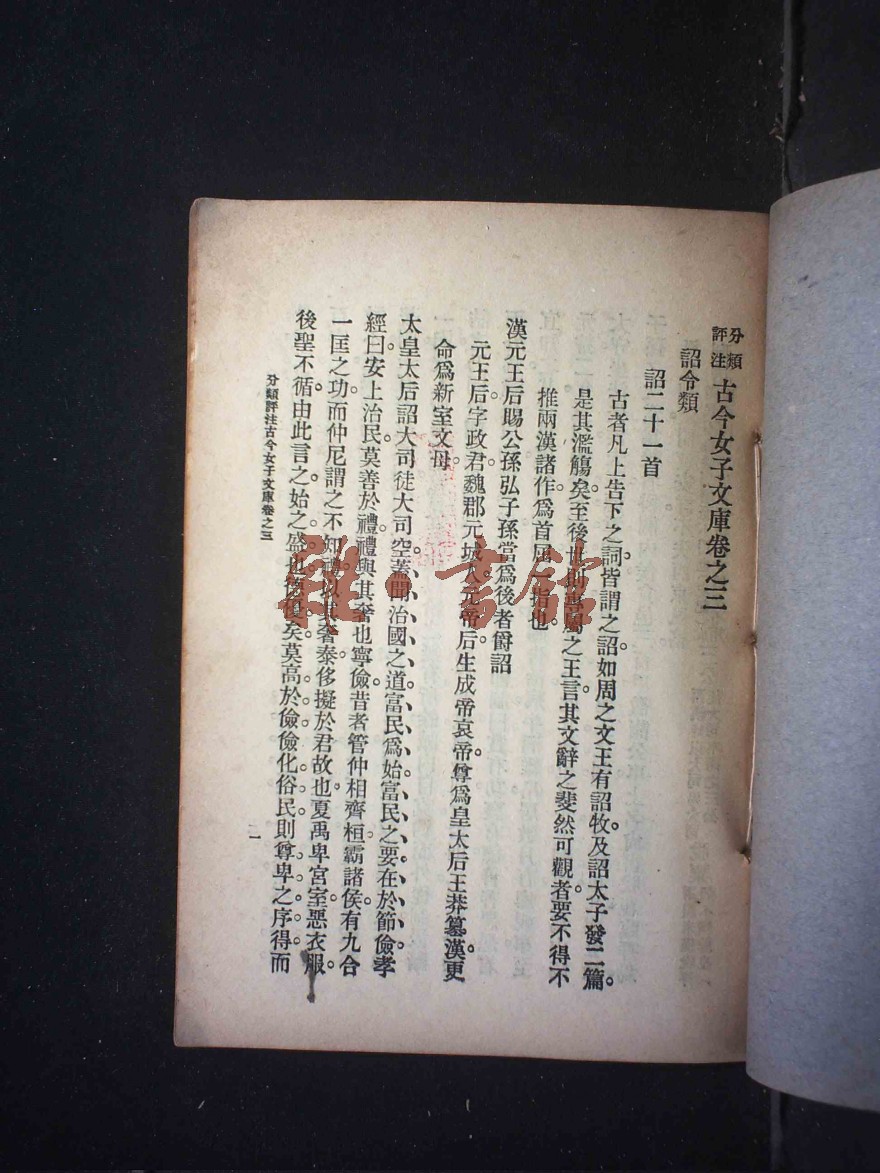 分類評注 古今女子文庫卷之三
詔令類
詔二十一首
古者凡上告下之詞皆謂之詔如周之文王有詔牧及詔太子發二篇。
是其濫觴矣。至後世則專屬之王言其文辭之斐然可觀者要不得不
推兩漢諸作爲首屈一指也
漢元王后賜公孫弘子孫當爲後者爵詔
元王后字政君。魏郡元城人。元帝后生成帝哀帝尊爲皇太后王莽篡漢更
命爲新室文母。
太皇太后詔大司徒大司空。蓋聞治國之道。富民爲始。富民之要在於節儉孝
經曰安上治民莫善於禮。禮與其奢也寧儉。昔者管仲相齊桓霸諸侯。有九合
一匡之功。而仲尼謂之不知禮。以其奢泰侈擬於君故也。夏禹卑宮室惡衣服。
後聖不循。由此言之。始之盛也。德優矣。莫高於儉。儉化俗民。則尊卑之序得而
分類評注古今女子文庫卷之三
一
雅書館